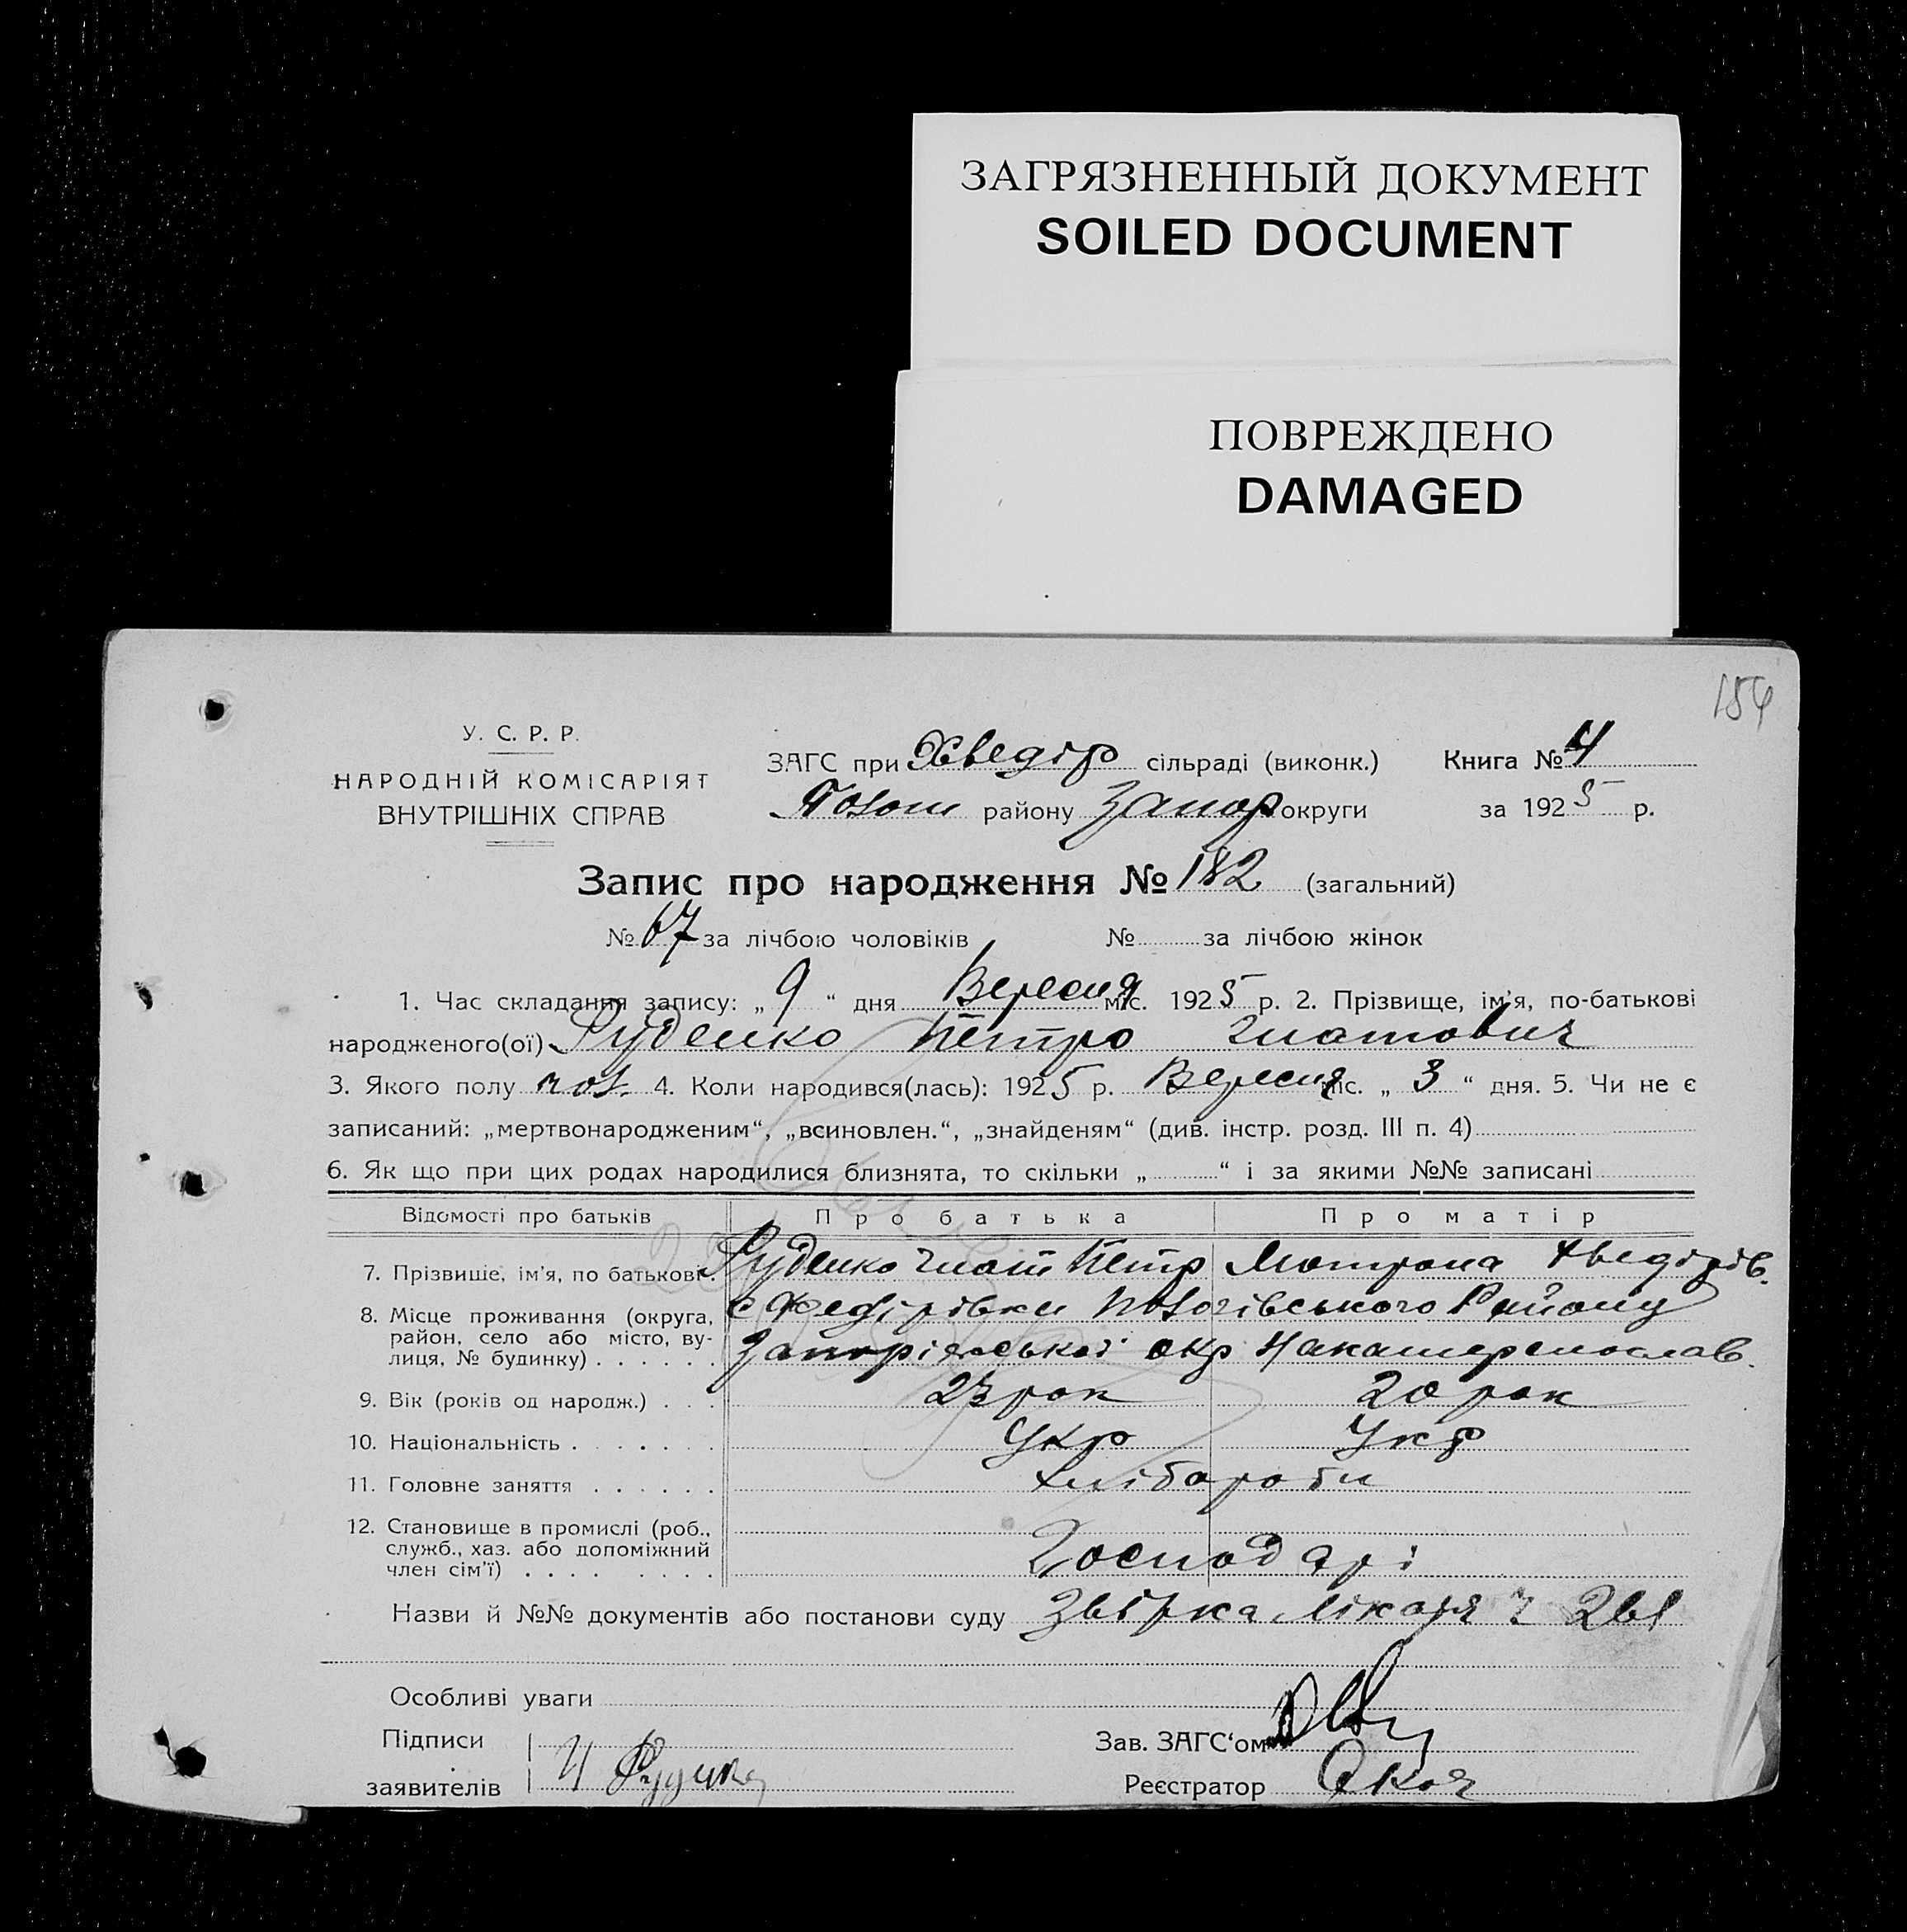 ЗАГРЯЗНЕННЫЙ ДОКУМЕНТ
SOILED DOCUMENT
ПОВРЕЖДЕНО
DAMAGED
У. С. Р. Р.
НАРОДНІЙ КОМІСАРІЯТ
ВНУТРІШНІХ СПРАВ
ЗАГС при Хведір сільраді (виконк.)
району Запор округи
Книга № 4
за 1925 р.
Запис про народження № 182 (загальний)
№ 67 за лічбою чоловіків № за лічбою жінок
1. Час складання запису: „ 9 “ дня Вересня міс. 1925 р. 2. Прізвище, ім'я, по-батькові
народженого(ої) Руденко Петро Гнатович
3. Якого полу чол. 4. Коли народився(лась): 1925 р. Вересня міс. „ 3 “ дня. 5. Чи не є
записаний: „мертвонародженим“, „всиновлен.“, „знайденям“ (див. інстр. розд. III п. 4)
6. Як що при цих родах народилися близнята, то скільки „ “ і за якими №№ записані
Відомості про батьків Про батька Про матір
7. Прізвище, ім'я, по батькові. Руденко Гнат Петр Мотрона Хведірів.
8. Місце проживання (округа, район, село або місто, вулиця, № будинку) с Федірівки Району
окр
9. Вік (років од народж.) 23 рок 20 рок
10. Національність Укр Укр
11. Головне заняття Хліборобы
12. Становище в промислі (роб., служб., хаз. або допоміжний член сім'ї) Господарі
Назви й №№ документів або постанови суду лікаря
Особливі уваги
Підписи
заявителів
Зав. ЗАГС‘ом
Реєстратор